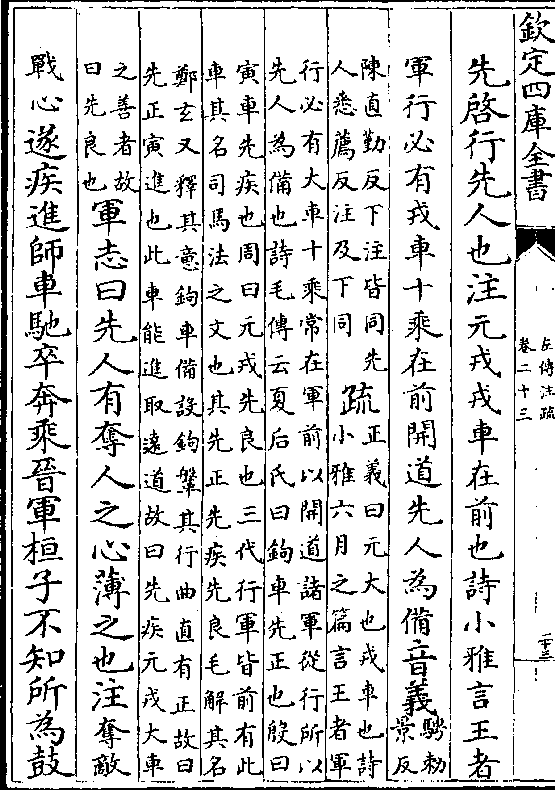 欽定四庫全書
左傳注疏
卷二十三
二十三
先啓行先人也注元戎戎車在前也詩小雅言王者
軍行必有戎車十乘在前開道先人為備音義騁勅景反
陳直勤反下注皆同先人悉薦反注及下同疏正義曰元大也戎車也詩小雅六月之篇言王者軍
行必有大車十乘常在軍前以開道諸軍從行所以先人為備也詩毛傳云夏后氏曰鉤車先正也殷曰
寅車先疾也周曰元戎先良也三代行軍皆前有此車其名司馬法之文也其先正先疾先良毛解其名
鄭玄又釋其意鉤車備設鉤鞶其行曲直有正故曰先正寅進也此車能進取遠道故曰先疾元戎大車
之善者故曰先良也軍志曰先人有奪人之心薄之也注奪敵
戰心遂疾進師車馳卒奔乘晉軍桓子不知所為鼓